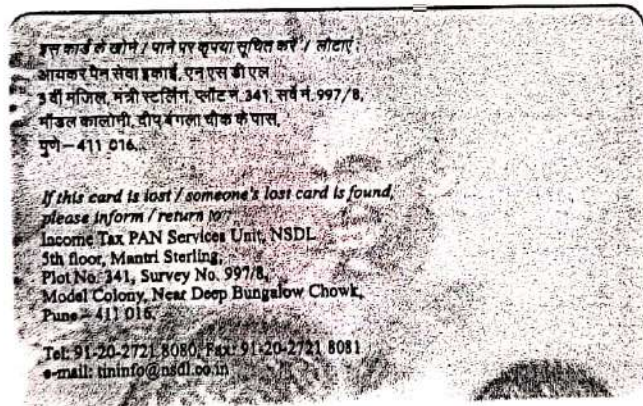 इस कार्ड के खोने / पाने पर कृपया सूचित करें / लौटाएं :
आयकर पैन सेवा इकाई, एन एस डी एल
3 वीं मंजिल, मंत्री स्टर्लिंग, प्लॉट नं. 341, सर्वे नं. 997/8,
मॉडल कालोनी, दीप बंगला चौक के पास,
पुणे – 411 016.
If this card is lost / someone's lost card is found,
please inform / return to :
Income Tax PAN Services Unit, NSDL
5th floor, Mantri Sterling,
Plot No. 341, Survey No. 997/8,
Model Colony, Near Deep Bungalow Chowk,
Pune – 411 016.
Tel: 91-20-2721 8080, Fax: 91-20-2721 8081
e-mail: tininfo@nsdl.co.in